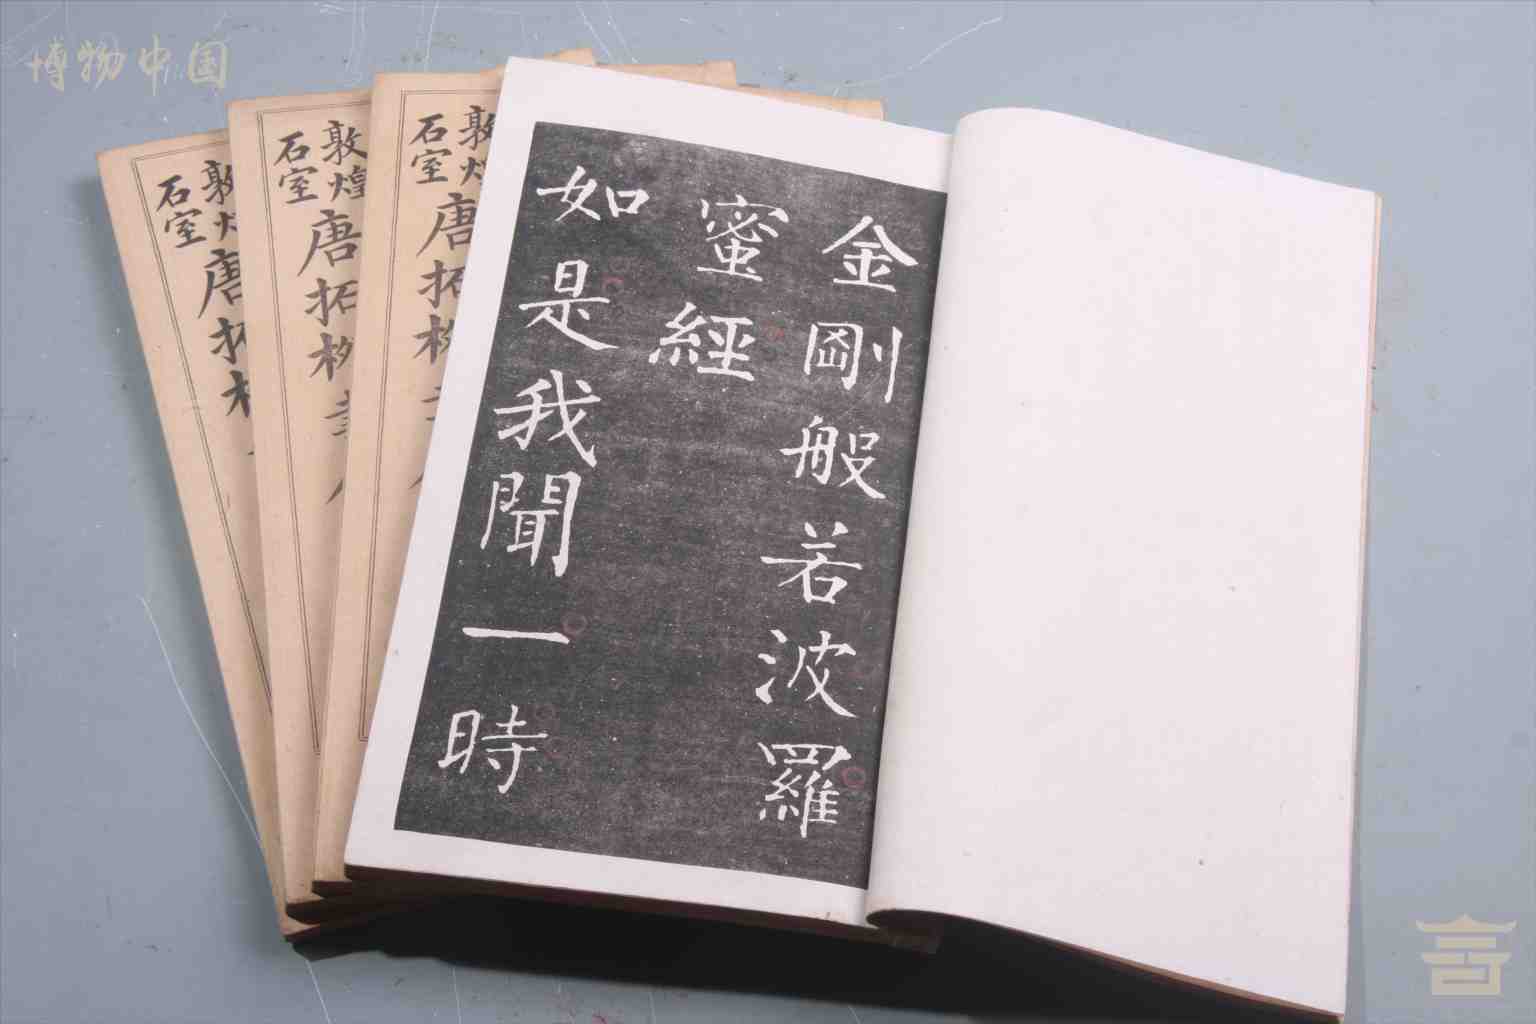 博物中国
金剛般若波羅
蜜經
如是我聞一時
敦煌
石室
唐拓
敦煌
石室
唐拓柳書
敦
石室
唐拓